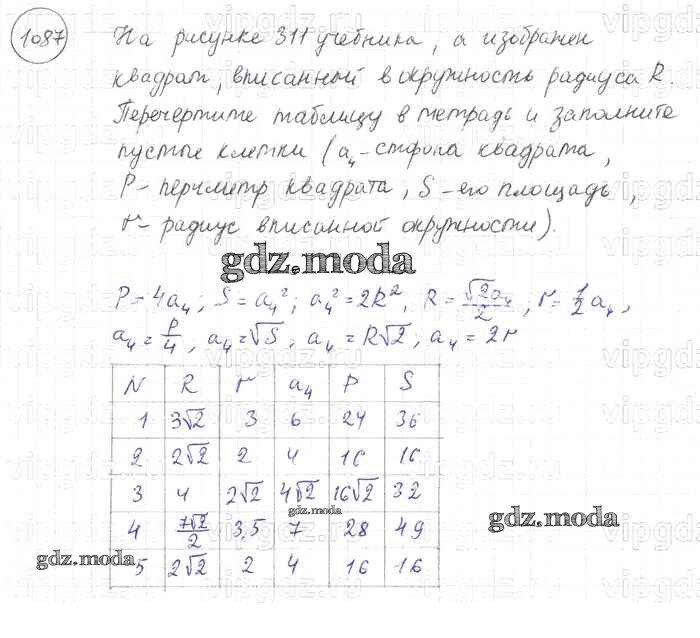 1087
На рисунке 311 учебника, а изображен
квадрат, вписанный в окружность радиуса R.
Перечертите таблицу в тетрадь и заполните
пустые клетки (a₄ - сторона квадрата,
P - периметр квадрата, S - его площадь,
r - радиус вписанной окружности).
gdz.moda
P = 4a₄; S = a₄²; a₄² = 2R², R = √2a₄/2; r = 1/2 a₄,
a₄ = P/4, a₄ = √S, a₄ = R√2; a₄ = 2r
N R r a₄ P S
1 3√2 3 6 24 36
2 2√2 2 4 16 16
3 4 2√2 4√2 16√2 32
gdz.moda
4 7√2/2 3,5 7 28 49
gdz.moda
gdz.moda
5 2√2 2 4 16 16